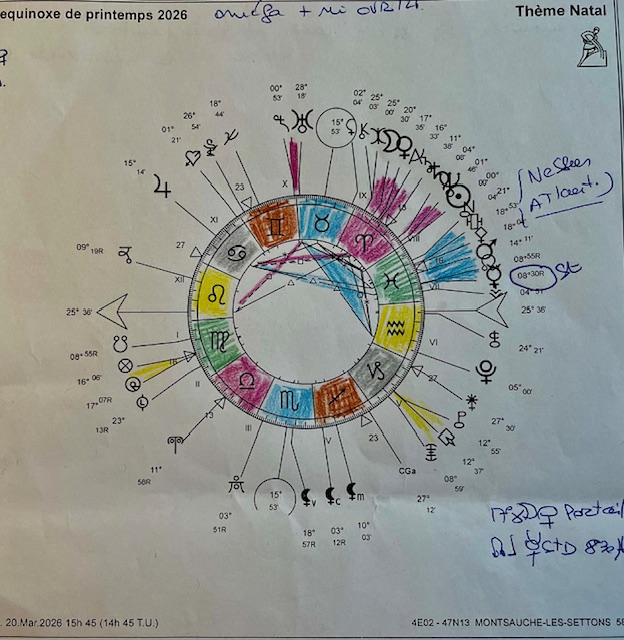 equinoxe de printemps 2026
Thème Natal
00° 53'
28° 18'
15° 53'
02° 04'
25° 03'
25° 00'
20° 30'
17° 35'
16° 33'
11° 38'
04° 08'
01° 46'
00° 09'
18° 44'
26° 54'
01° 21'
15° 14'
09° 19R
X
IX
XI
23
27
XII
VIII
VII
14° 11'
08° 55R
08° 30R
04° 51'
25° 36'
25° 36'
I
VI
08° 55R
16° 06'
17° 07R
13R 23°
II
13
III
IV
24° 21'
05° 00'
27
23
27° 30'
12° 55'
12° 37'
08° 59'
CGa
27° 12'
11° 58R
03° 51R
15° 53'
18° 57R
03° 12R
10° 03'
v
c
m
20.Mar.2026 15h 45 (14h 45 T.U.)
4E02 - 47N13 MONTSAUCHE-LES-SETTONS